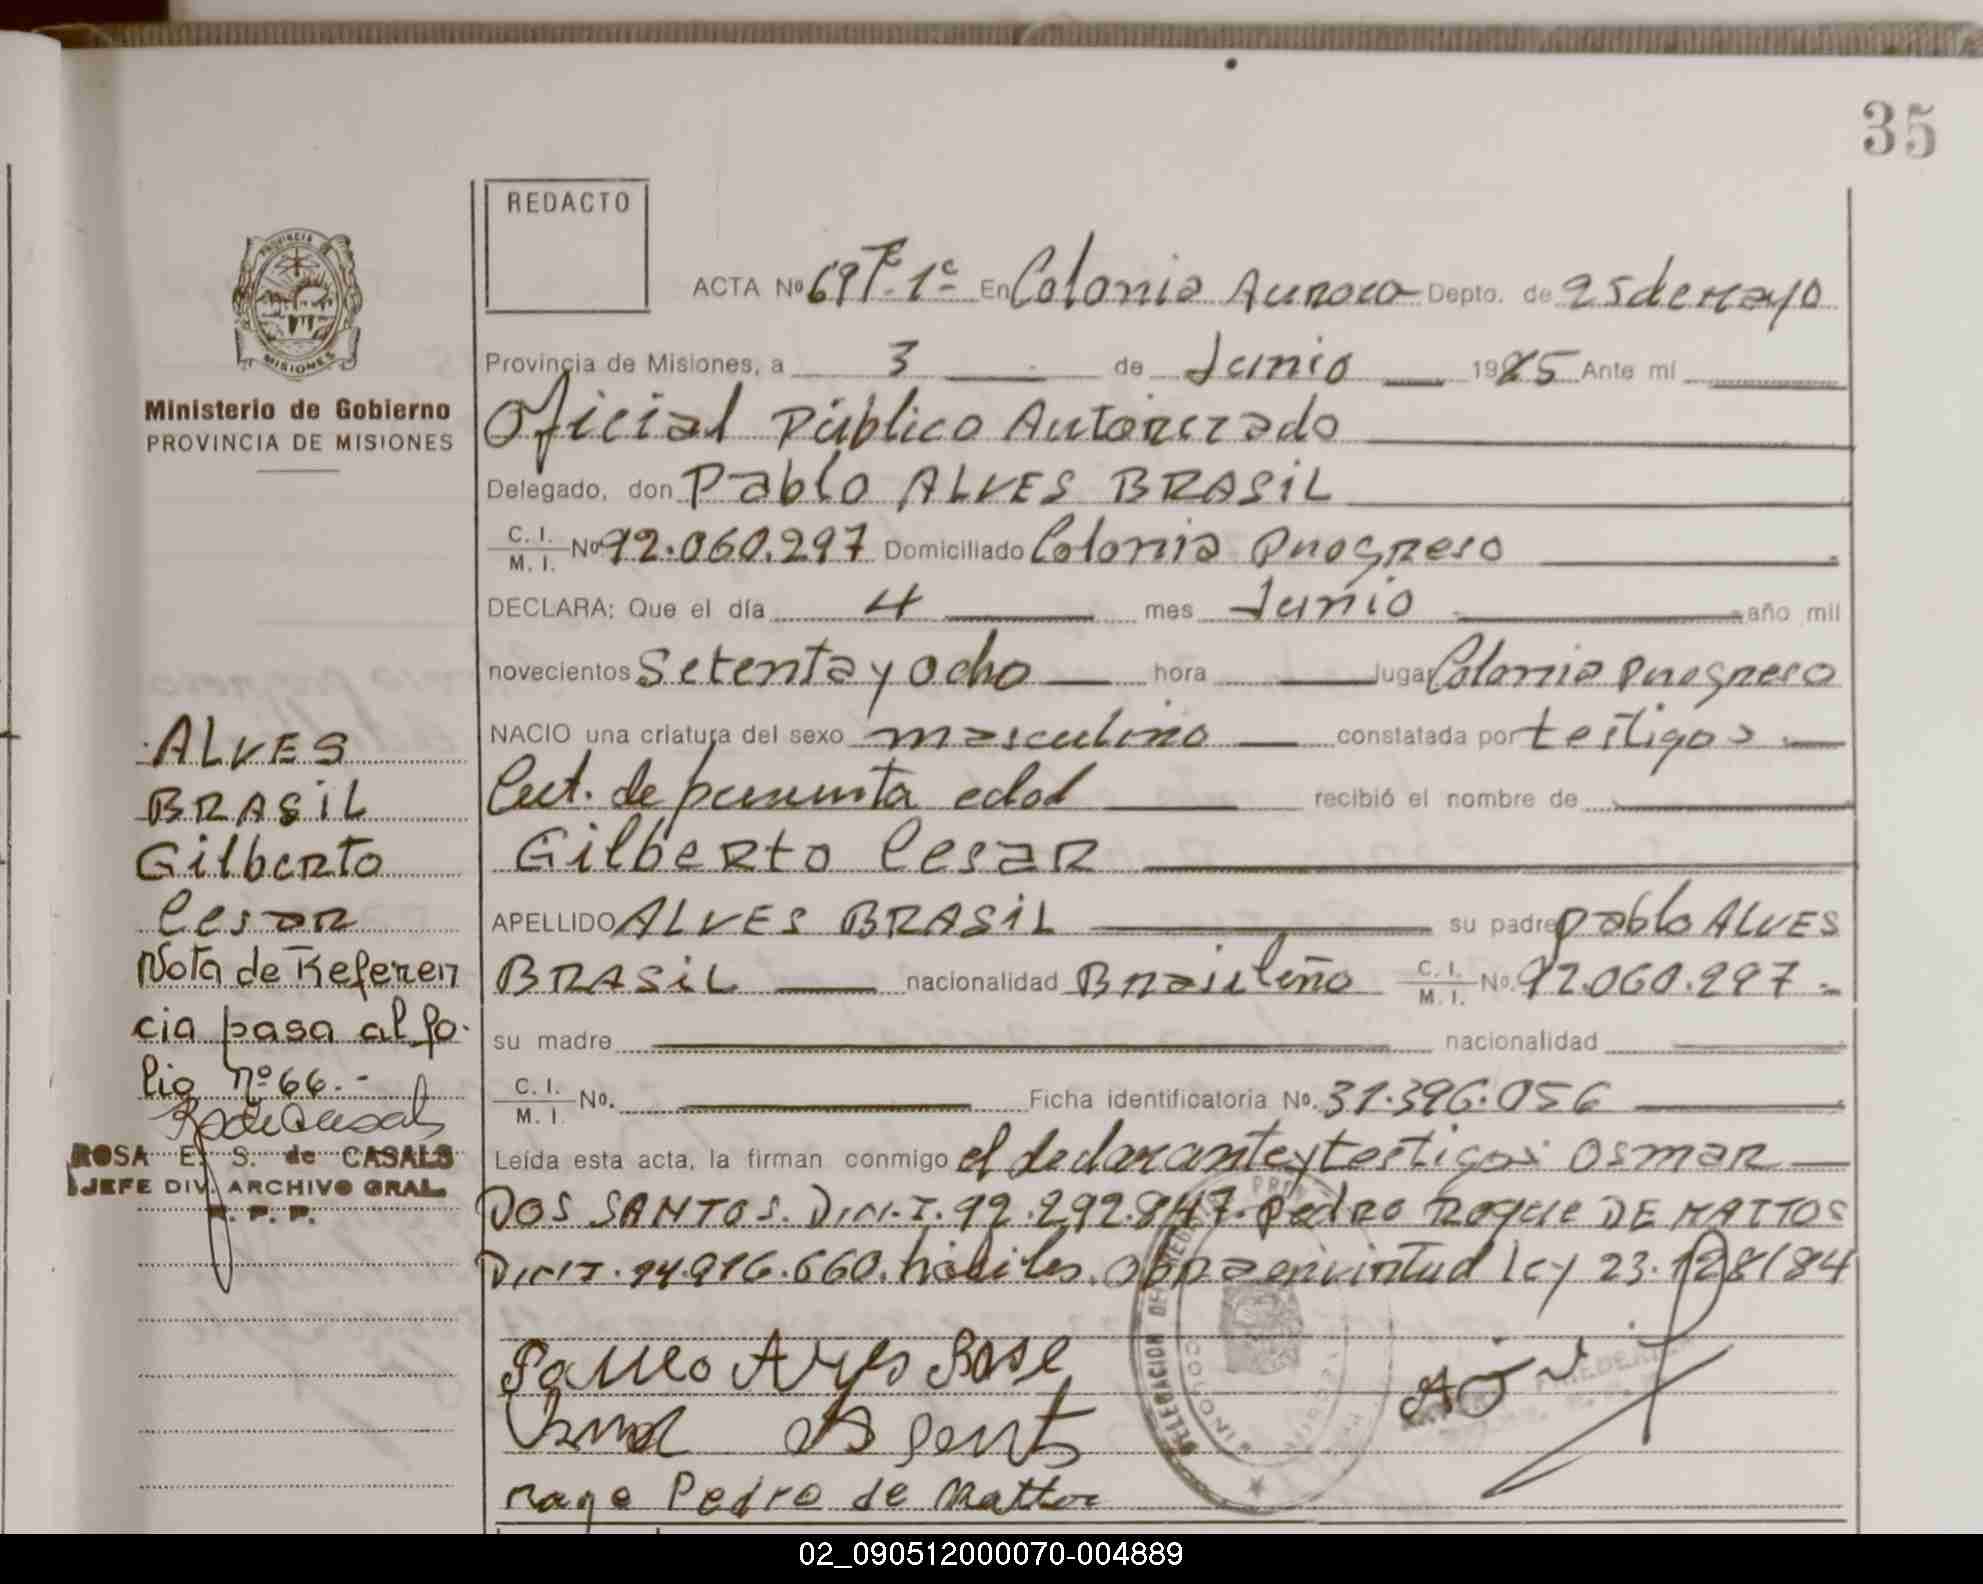 35
REDACTO
PROVINCIA
MISIONES
Ministerio de Gobierno
PROVINCIA DE MISIONES
ACTA Nº 69 Tº 1º En Colonia Aurora Depto. de 25 de Mayo
Provincia de Misiones, a 3 de Junio 1985 Ante mí
Oficial Público Autorizado
Delegado, don Pablo ALVES BRASIL
C. I. / M. I. Nº 92.060.297 Domiciliado Colonia Progreso
DECLARA: Que el día 4 mes Junio año mil
novecientos Setenta y ocho hora lugar Colonia Progreso
NACIO una criatura del sexo masculino constatada por testigos
Cert. de presunta edad recibió el nombre de
Gilberto Cesar
APELLIDO ALVES BRASIL su padre Pablo ALVES
BRASIL nacionalidad Brasileño C. I. / M. I. No. 92.060.297.-
su madre nacionalidad
C. I. / M. I. No. Ficha identificatoria No. 31.396.056
Leída esta acta, la firman conmigo el declarante y testigos Osmar
DOS SANTOS. D.N.I. 92.292.847. Pedro Roque DE MATTOS
DNI 14.916.660. hábiles. Obra en virtud ley 23.128/84
ALVES
BRASIL
Gilberto
Cesar
Nota de Referen
cia pasa al fo-
lio nº 66.-
ROSA E. S. de CASALS
JEFE DIV. ARCHIVO GRAL.
R. P. P.
DELEGACION
Pedro de Mattos
02_090512000070-004889